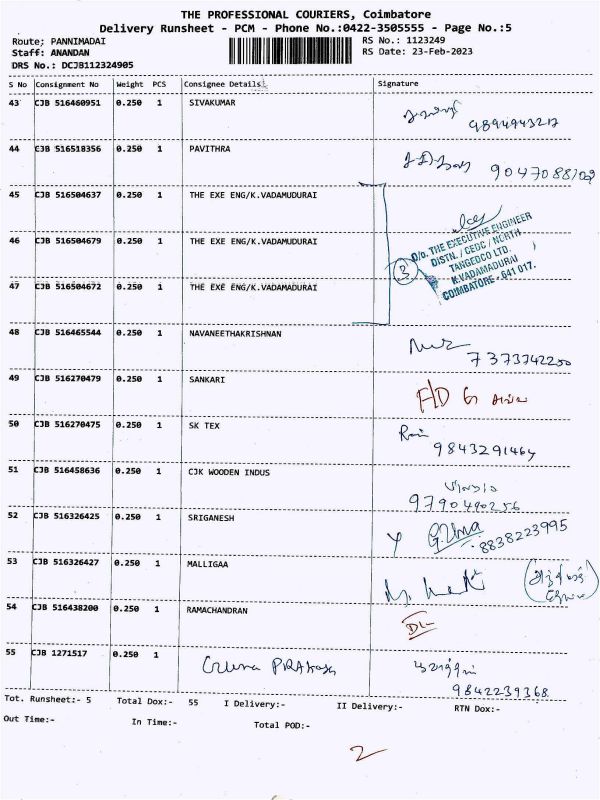 THE PROFESSIONAL COURIERS, Coimbatore
Delivery Runsheet - PCM - Phone No.:0422-3505555 - Page No.:5
Route; PANNIMADAI
RS No.: 1123249
Staff: ANANDAN
RS Date: 23-Feb-2023
DRS No.: DCJB112324905
S No Consignment No Weight PCS Consignee Details Signature
43 CJB 516460951 0.250 1 SIVAKUMAR
9894943217
44 CJB 516518356 0.250 1 PAVITHRA
45 CJB 516504637 0.250 1 THE EXE ENG/K.VADAMUDURAI
46 CJB 516504679 0.250 1 THE EXE ENG/K.VADAMUDURAI
47 CJB 516504672 0.250 1 THE EXE ENG/K.VADAMUDURAI
3
O/o. THE EXECUTIVE ENGINEER
DISTN. / CEDC / NORTH
TANGEDCO LTD.
K.VADAMADURAI
COIMBATORE - 641 017.
48 CJB 516465544 0.250 1 NAVANEETHAKRISHNAN
7373742250
49 CJB 516270479 0.250 1 SANKARI
F/D
50 CJB 516270475 0.250 1 SK TEX
9843291464
51 CJB 516458636 0.250 1 CJK WOODEN INDUS
9790490256
52 CJB 516326425 0.250 1 SRIGANESH
G.Uma
8838223995
53 CJB 516326427 0.250 1 MALLIGAA
54 CJB 516438200 0.250 1 RAMACHANDRAN
DL
55 CJB 1271517 0.250 1
9842239368
Tot. Runsheet:- 5 Total Dox:- 55 I Delivery:- II Delivery:- RTN Dox:-
Out Time:- In Time:- Total POD:-
2